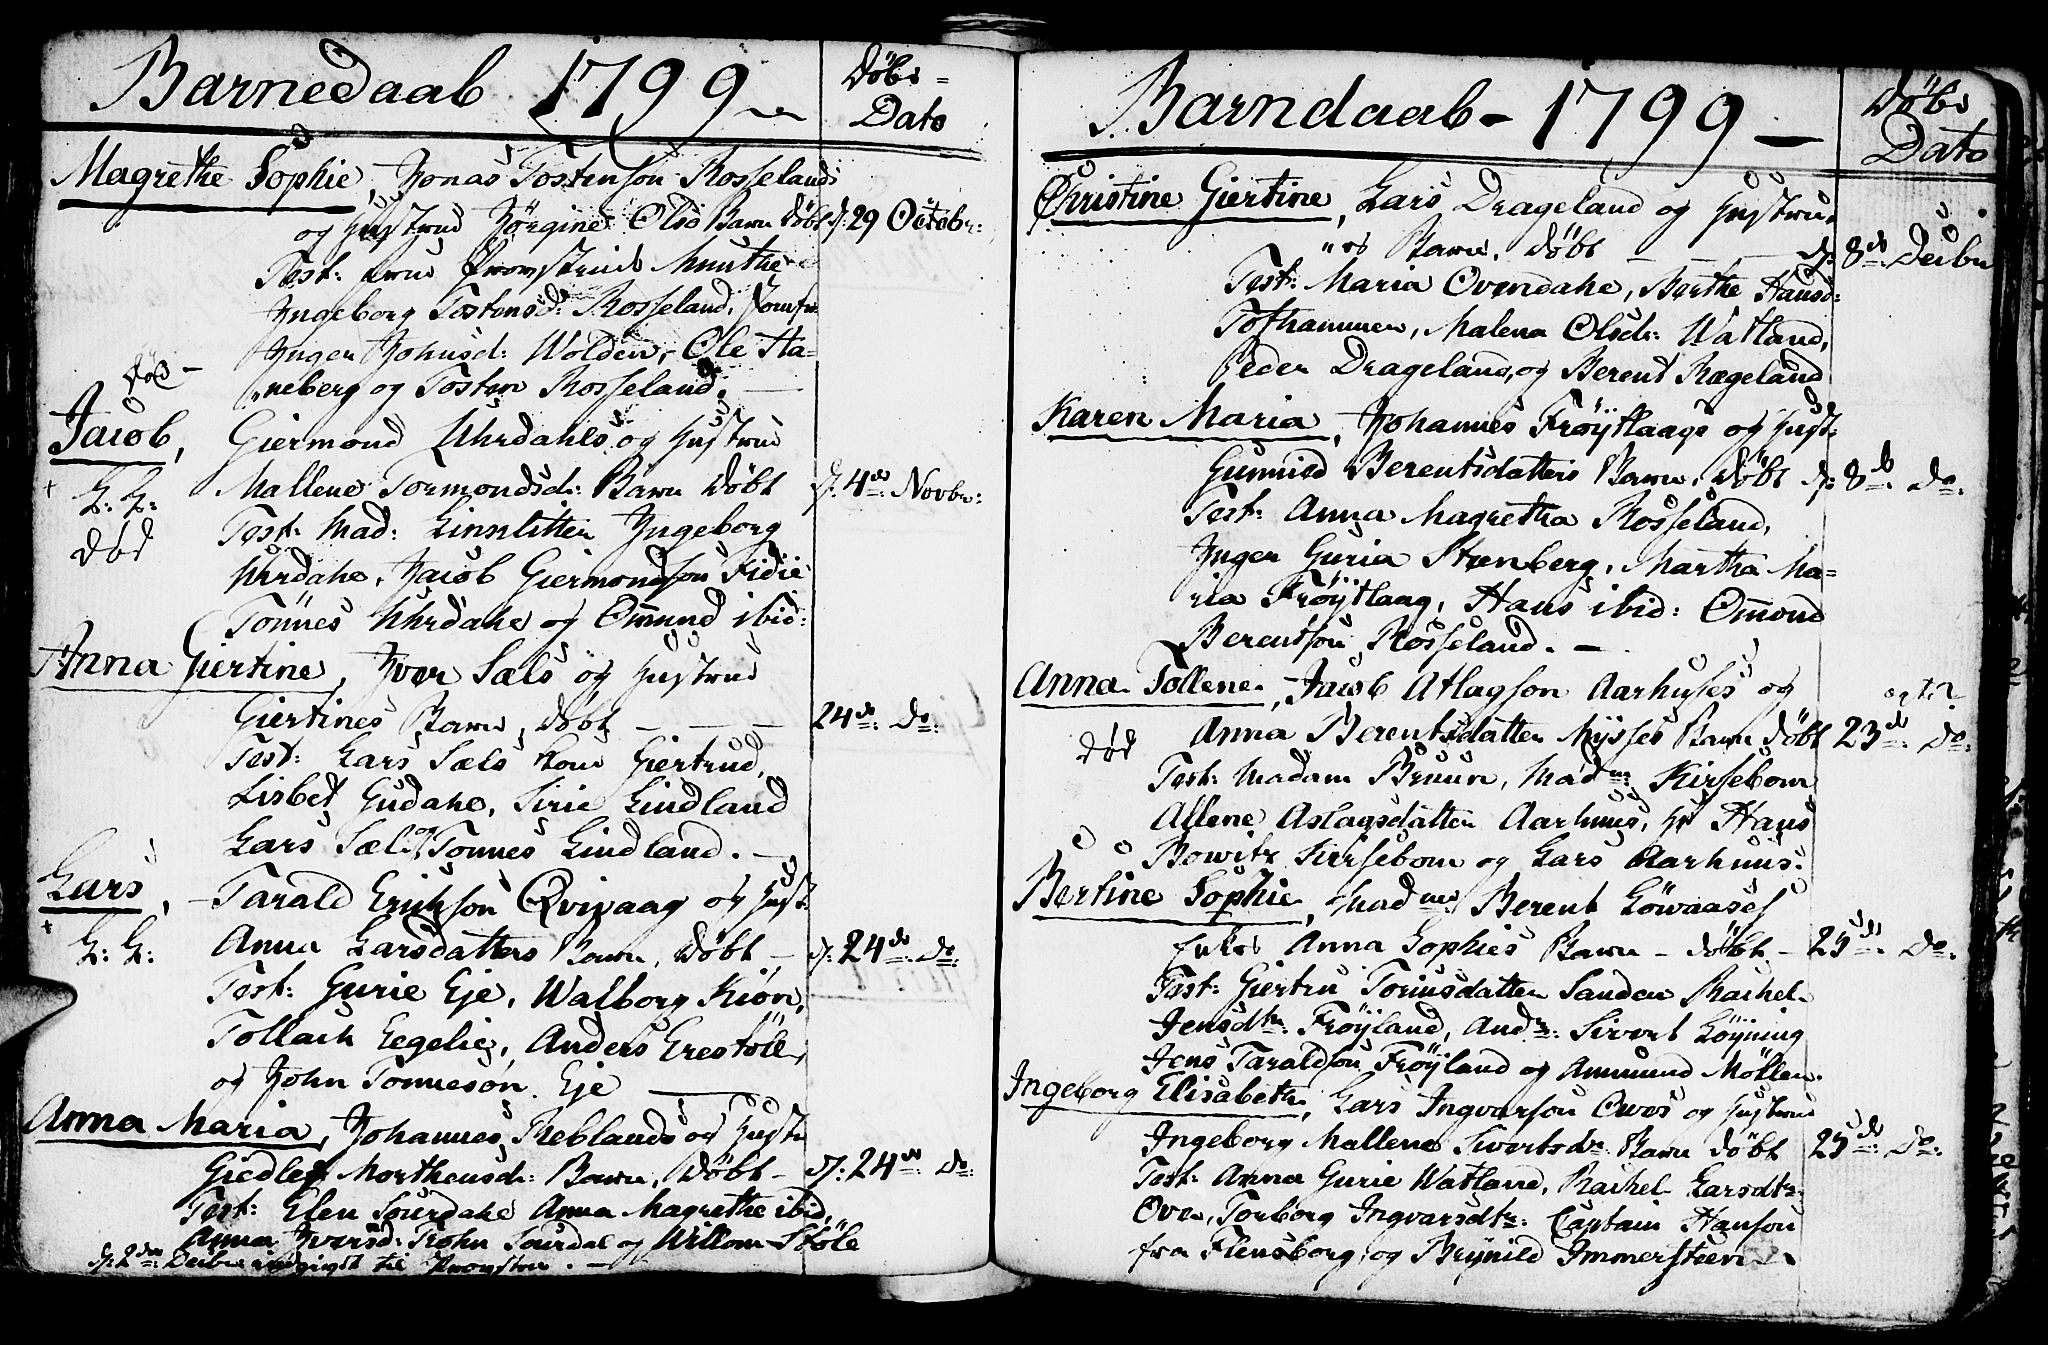 Barnedaab 1799
Döbs-
Dato
Magrethe Sophie, Jonas Tostenson Rosselands
og Hustrud Jörgine Olsd Barn döbt d: 29 Octobr:
Test: Frue Provstinde Munthe
Ingeborg Tostensd: Rosseland, Jomfr
Inger Johnsd: Wolden, Ole Ha=
neberg og Tosten Rosseland.
död -
Jacob, Giermond Uhrdahls og Hustrud
Mallene Tormondsd: Barn döbt d: 4de Novbr:
død
Test: Mad: Ingeborg
Uhrdahe, Jacob Giermondson Fidie
Tönnes Uhrdahe og Ommund ibid:
Anna Giertine, Iver Sæls og Hustrud
Giertines Barn, döbt - - - 24de: Do:
Test: Lars Sæls Kone Giertrud,
Lisbet Gudahe, Sirie Lindland
Lars Sæl og Tonnes Lindland. -
Lars, Tarald Erikson Qvivaag og Hust:
L: L: Anna Larsdatters Barn, döbt - d: 24de: Do:
Test: Gurie Eje, Walborg Kiøn,
Tollach Eegelie, Anders Erestöl,
og John Tonnesøn Eje
Anna Maria, Johannes Reblands og Hustr
Giedle Morthensd: Barn, döbt - d: 24de: Do:
Test: Elen Sourdahe Anna Magrethe ibid,
Anna Iversd: Trohn Sourdal og Willom Stöle
d: 2den Decbr indgivet til Provsten. -
Barndaab - 1799 -
Döbs
Dato
Christine Giertine, Lars Drageland og Hustru
Barn, döbt - - - d: 8de: Decbr
Test: Maria Ovendahe, Berthe Hansd:
Tofhammer, Malena Olsdr: Watland,
Peder Drageland, og Berent Rægeland
Karen Maria, Johannes Fröytlaags og Hust:
Gunnild Berentsdatters Barn, döbt d: 8de: Do:
Test: Anna Magretha Rosseland,
Inger Guria Steenberg, Martha Ma=
ria Fröytlaag, Hans ibid: Ommond
Berentson Rosseland. -
Anna Tollene, Jacob Atlagson Aarhuses og
død
Anna Berentsdatter Nysses Barn döbt 23de: Do:
Test: Madam Bruun, Madme: Kirsebom
Allene Aslagsdatter Aarhuus, Hr Hans
Bowitz Kiersebom og Lars Aarhuus.
Bertine Sophie, Madme Berent Löwaases
Enkes Anna Sophies Barn - döbt - 25de: Do:
Test: Giertru Tönnesdatter Sanden Rachel
Jensdtr: Fröyland, Andr: Sivert Löyning
Jens Taraldson Fröyland og Ammund Möllen.
Ingeborg Elisabeth, Lars Ingvarson Owes og Hustrue
Ingeborg Mallene Sivertsdr: Barn döbt 25de: Do:
Test: Anna Gurie Watland, Rachel Larsdtr:
Oven, Torborg Ingvarsdtr: Captain Hanson
fra Flensborg, og Brynild Immersteen